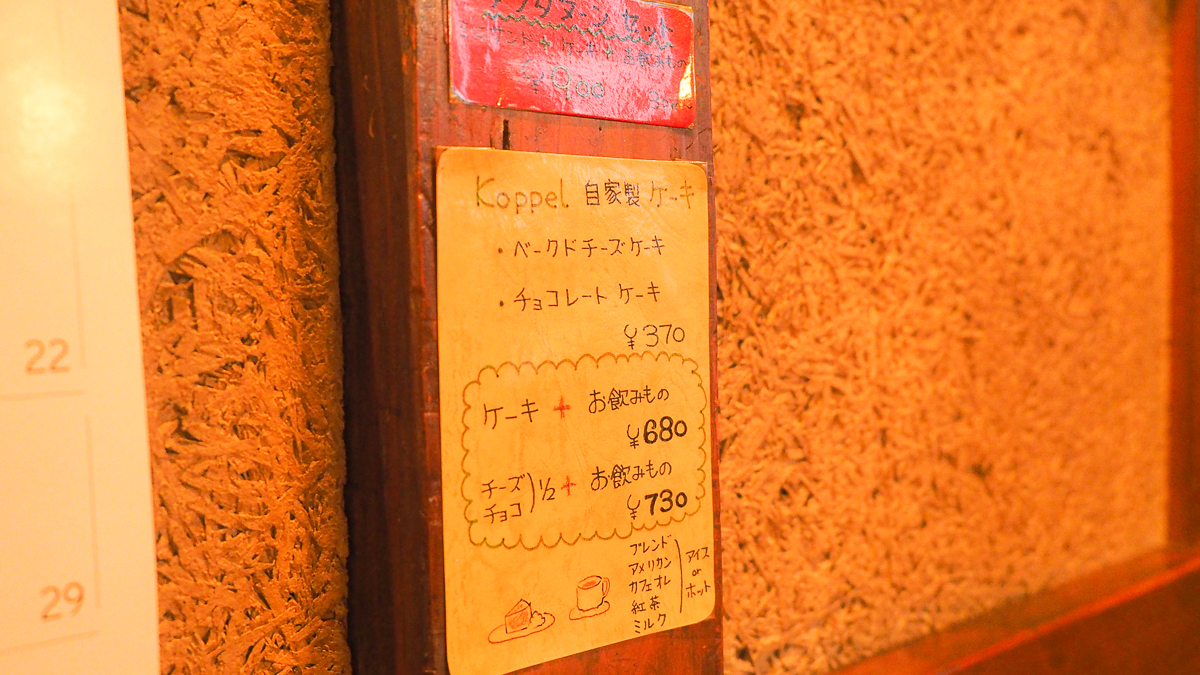 アフタヌーン セット
ケーキ + お飲みもの
¥900
Koppel 自家製 ケーキ
・ベークドチーズケーキ
・チョコレート ケーキ
¥370
ケーキ + お飲みもの
¥680
チーズ
チョコ
) 1/2 + お飲みもの
¥730
ブレンド
アメリカン
カフェオレ
紅茶
ミルク
アイス
or
ホット
22
29